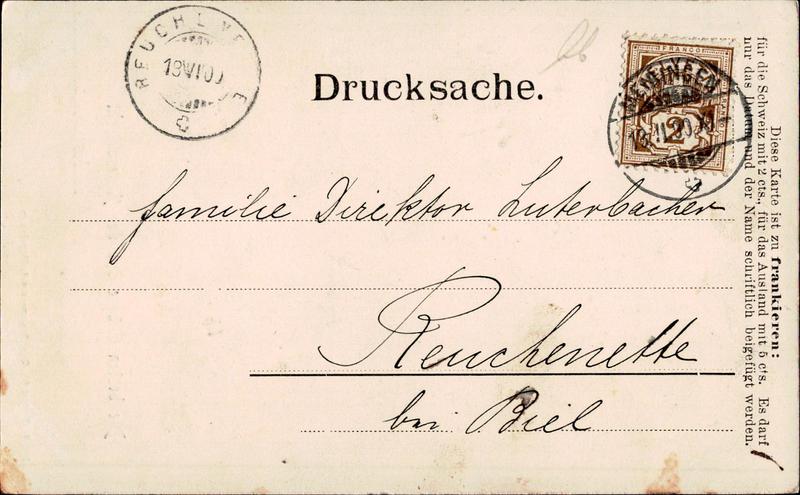 Drucksache.
FRANCO
2
Familie Direktor Luterbacher
Reuchenette
bei Biel
Diese Karte ist zu frankieren:
für die Schweiz mit 2 cts., für das Ausland mit 5 cts. Es darf
nur das Datum und der Name schriftlich beigefügt werden.